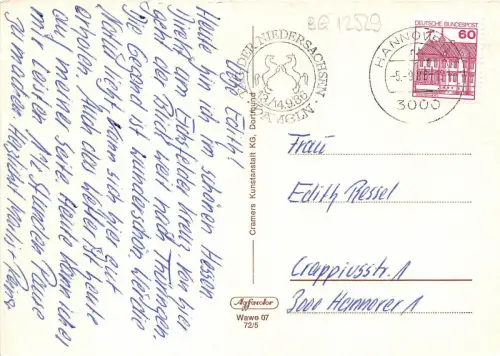 BG 12529
Liebe Edith!
Heute bin ich im schönen Hessen
direkt am Eichsfelder Kreuz von hier
kann ein Blick weit nach Thüringen.
Die Gegend ist wunderschön
Nur liegt, kann sich hier gut
erholen. Auch das Wetter ist heute
auf meiner Seite. Heute kann ich es
mir leisten 1 1/2 Stunden Pause
zu machen. Herzlichst
TAG DER NIEDERSACHSEN
14.9.86
HANNOVER
-5.-9.86
3000
DEUTSCHE BUNDESPOST
60
Cramers Kunstanstalt KG, Dortmund
Frau
Edith Ressel
Crappiusstr. 1
3000 Hannover 1
Agfacolor
Wawe 07
72/5